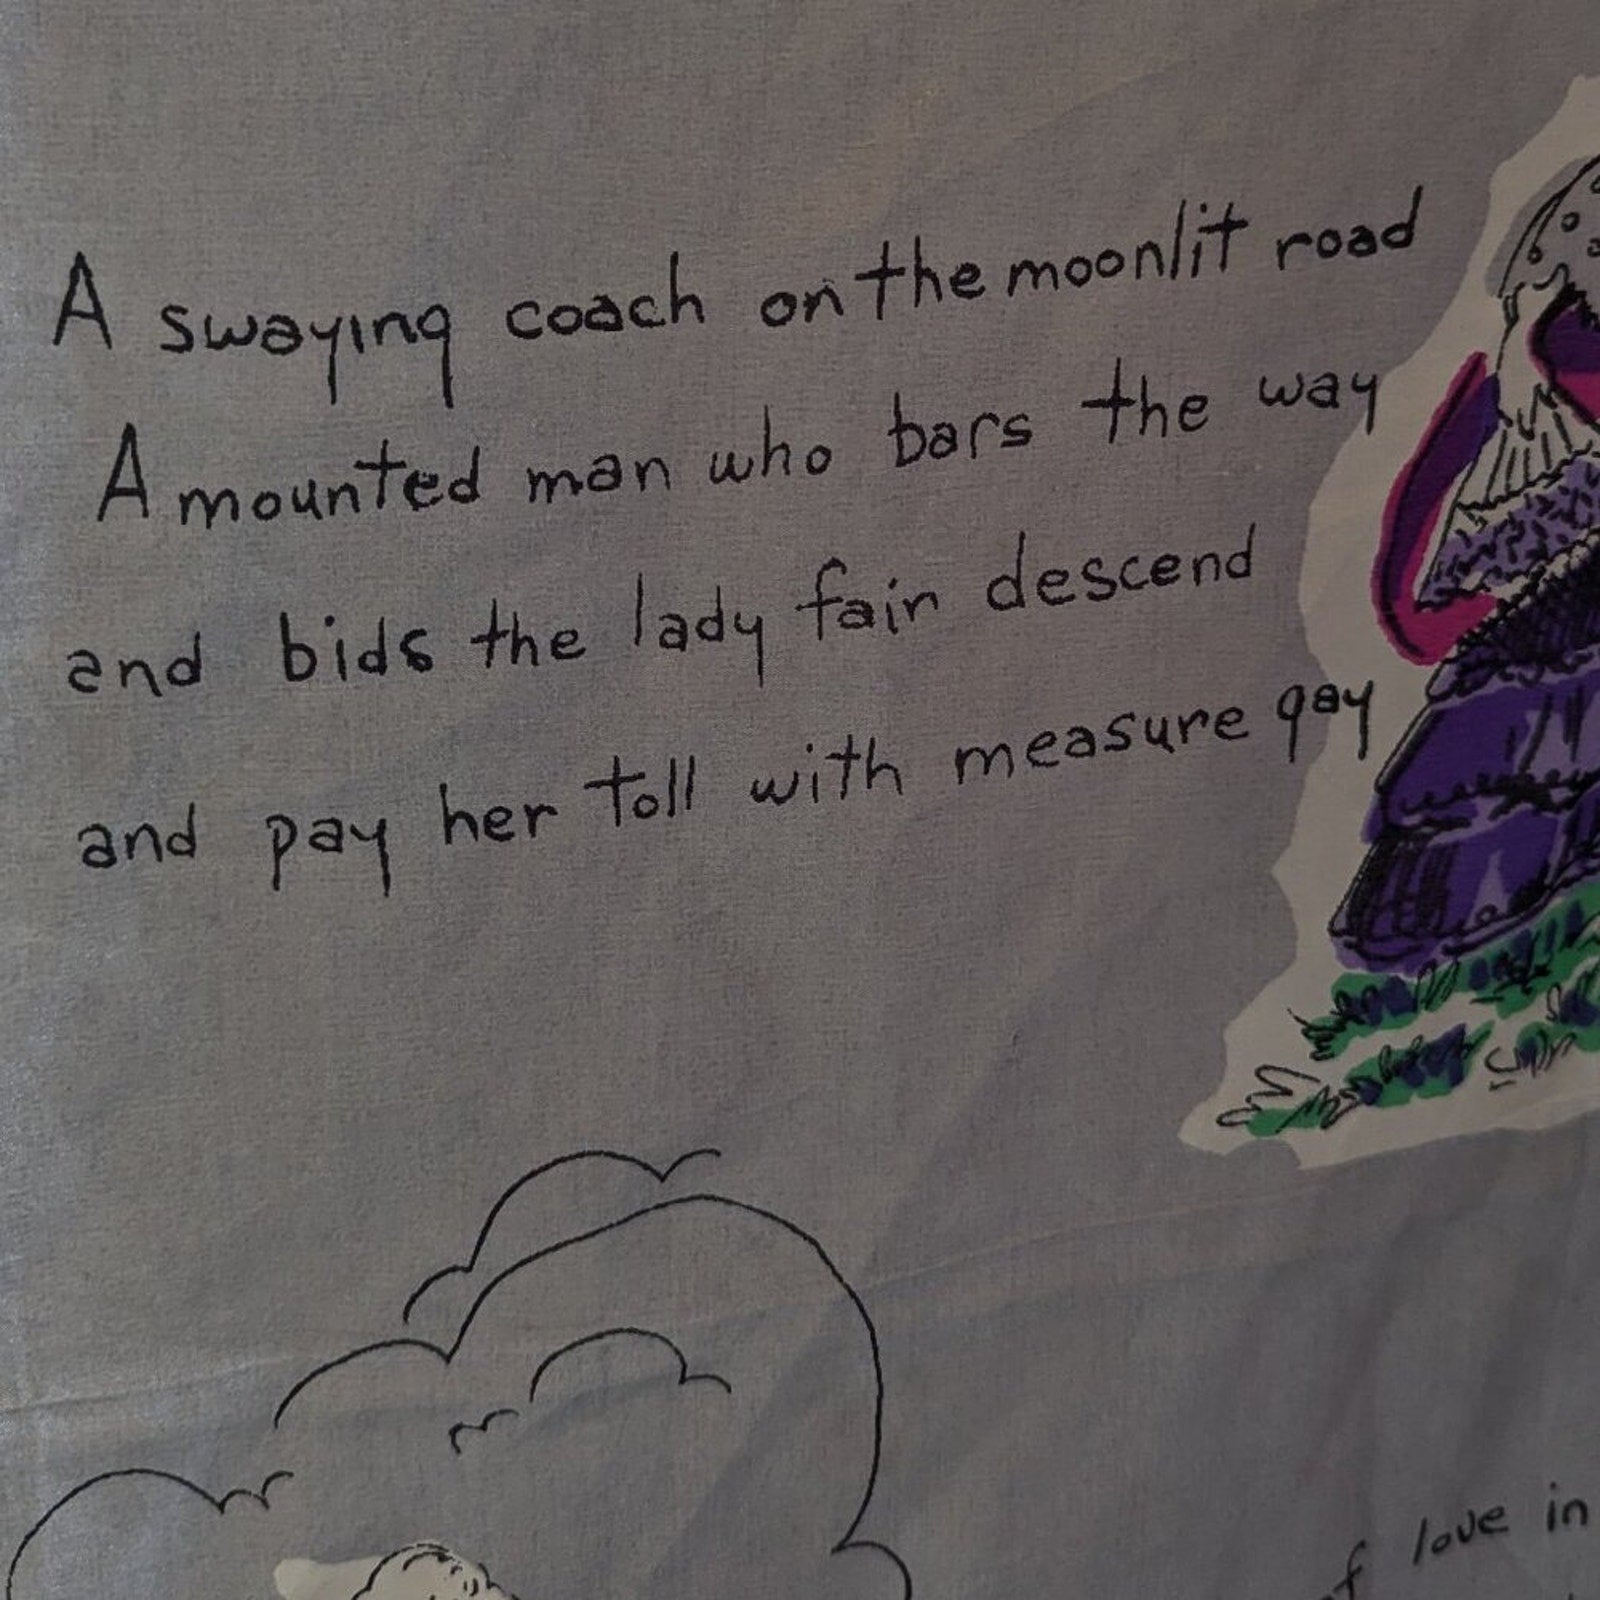 A swaying coach on the moonlit road
A mounted man who bars the way
and bids the lady fair descend
and pay her toll with measure gay
love in